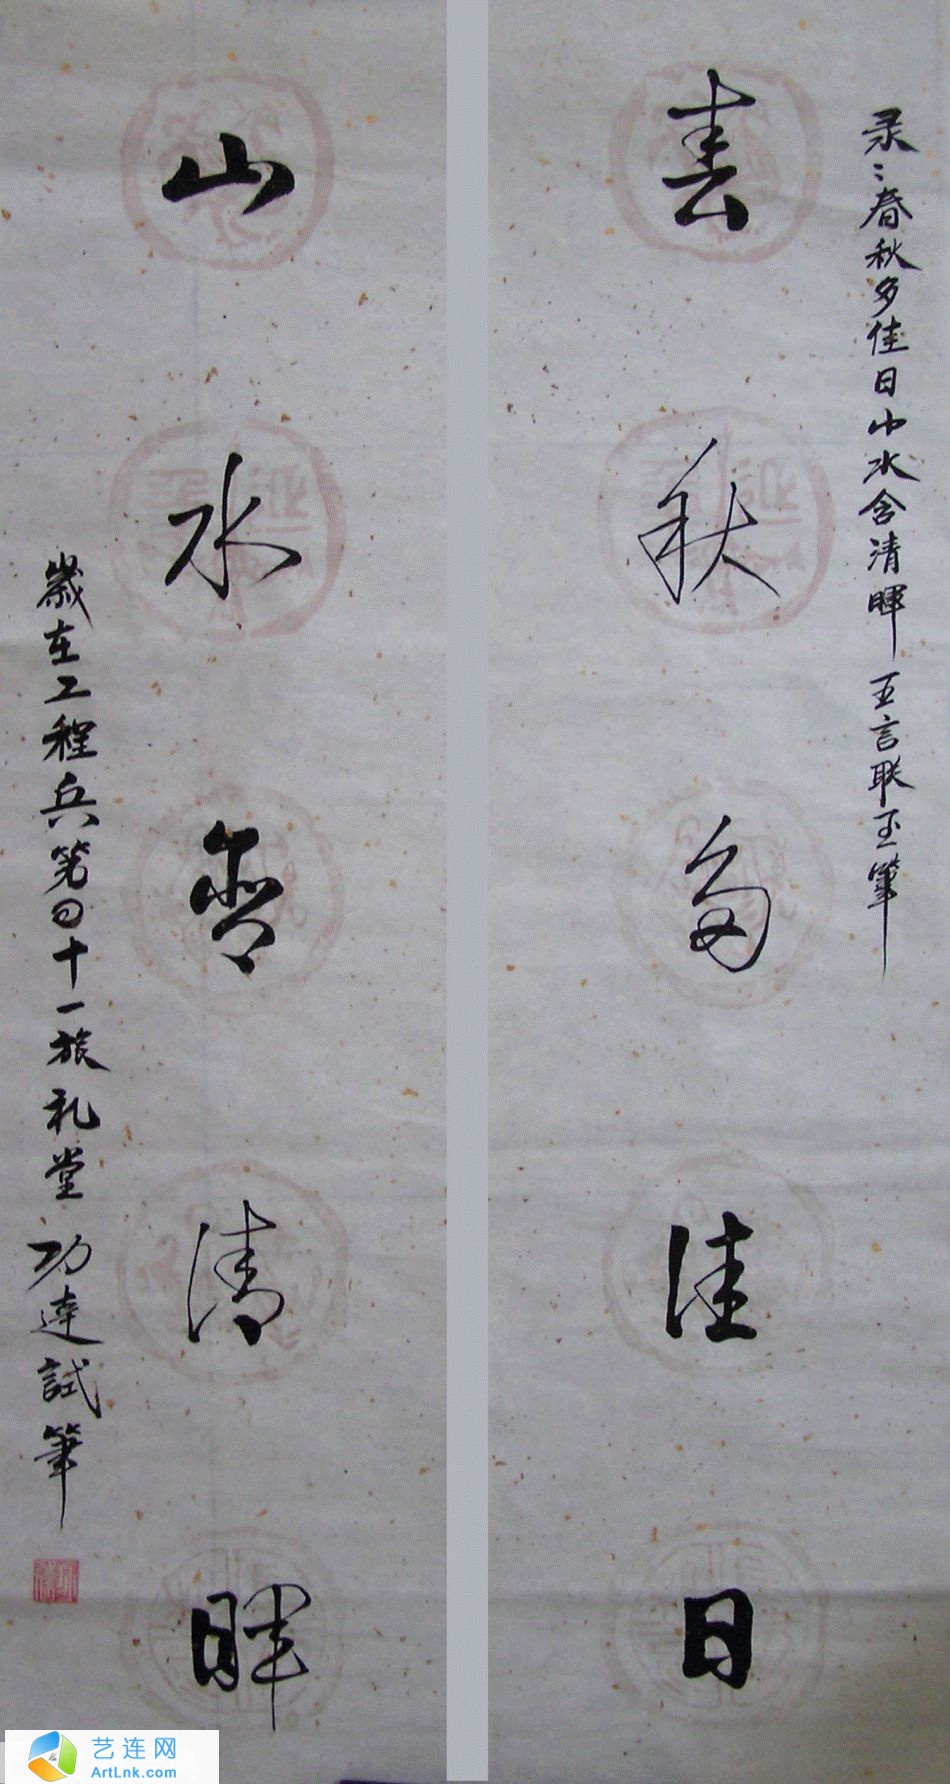 录：春秋多佳日山水含清晖 五言联 玉筆
春秋多佳日
山水含清晖
歲在工程兵第四十一旅礼堂 功達試筆
艺连网
ArtLnk.com